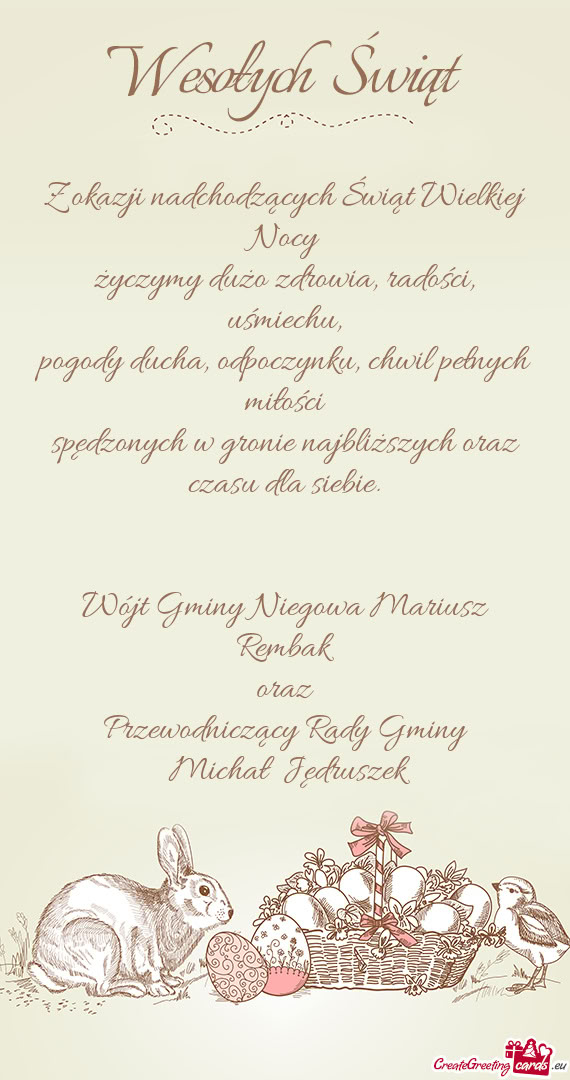 Wesołych Świąt
Z okazji nadchodzących Świąt Wielkiej
Nocy
życzymy dużo zdrowia, radości,
uśmiechu,
pogody ducha, odpoczynku, chwil pełnych
miłości
spędzonych w gronie najbliższych oraz
czasu dla siebie.
Wójt Gminy Niegowa Mariusz
Rembak
oraz
Przewodniczący Rady Gminy
Michał Jędruszek
CreateGreeting cards .eu